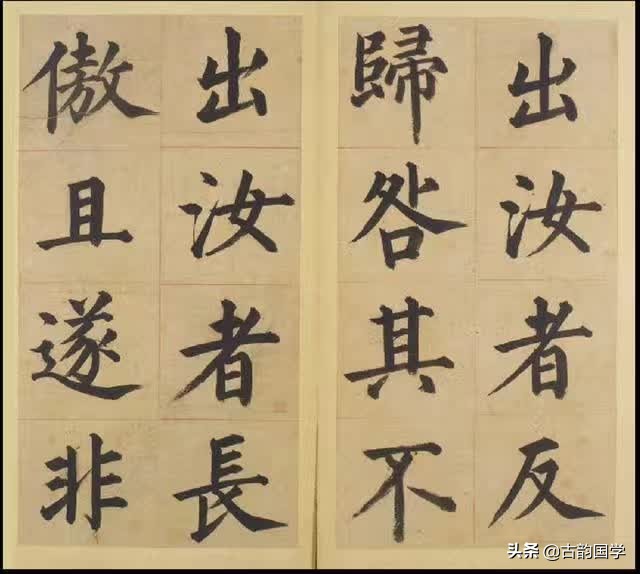 出汝者反
歸咎其不
出汝者長
傲且遂非
头条 @古韵国学